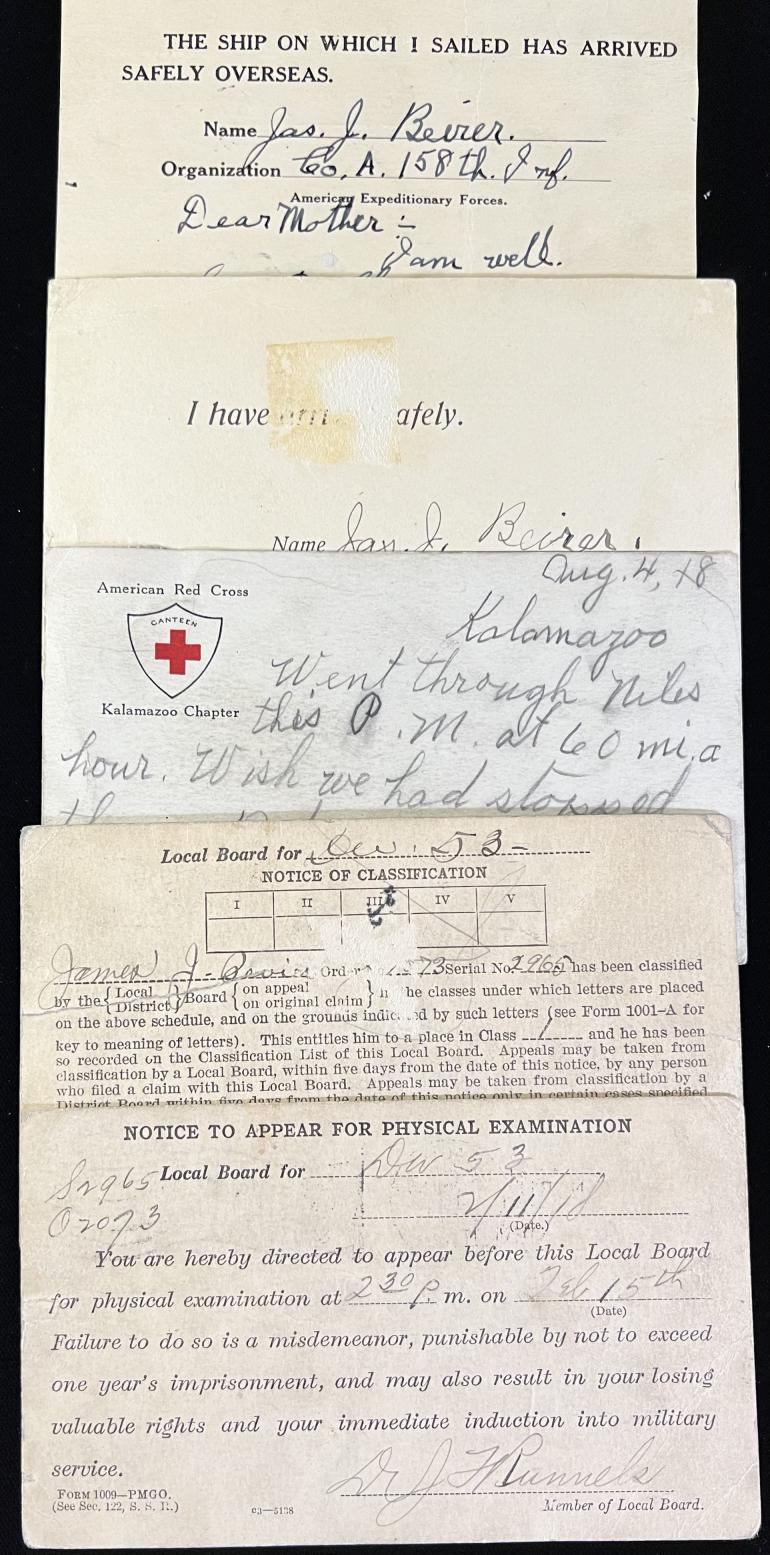 THE SHIP ON WHICH I SAILED HAS ARRIVED
SAFELY OVERSEAS.
Name Jas. J. Beirer.
Organization Co. A. 158th. Inf.
American Expeditionary Forces.
Dear Mother :-
I am well.
I have afely.
Name Jas. J. Beirer.
Aug. 4, 18
American Red Cross
CANTEEN
Kalamazoo Chapter
Kalamazoo
Went through Niles
this P.M. at 60 mi. a
hour. Wish we had stopped
Local Board for Div. 53
NOTICE OF CLASSIFICATION
I II III IV V
James J. Order 73 Serial No. 2965 has been classified
by the { Local District } Board { on appeal on original claim } the classes under which letters are placed
on the above schedule, and on the grounds indic ed by such letters (see Form 1001-A for
key to meaning of letters). This entitles him to a place in Class 1 and he has been
so recorded on the Classification List of this Local Board. Appeals may be taken from
classification by a Local Board, within five days from the date of this notice, by any person
who filed a claim with this Local Board. Appeals may be taken from classification by a
District Board within five days from the date of this notice only in certain cases specified
NOTICE TO APPEAR FOR PHYSICAL EXAMINATION
S2965 Local Board for Div 53
O2073 2/11/18
(Date.)
You are hereby directed to appear before this Local Board
for physical examination at 2 30 p. m. on Feb 15th
(Date)
Failure to do so is a misdemeanor, punishable by not to exceed
one year's imprisonment, and may also result in your losing
valuable rights and your immediate induction into military
service.
Dr J F Runnels
FORM 1009—PMGO.
(See Sec. 122, S. S. R.)
c3—5138
Member of Local Board.